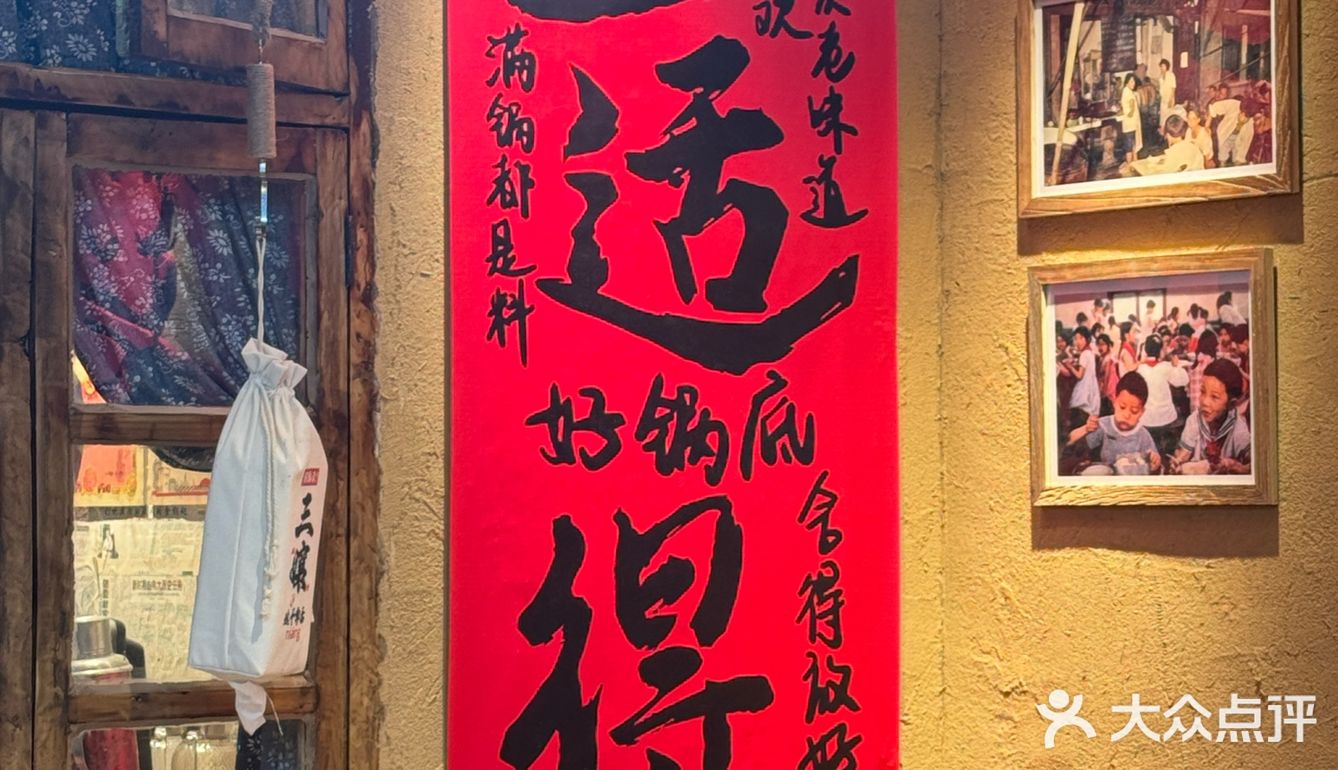 满锅都是料
适
欢庆老味道
好锅底
舍得放好
得
三孃
大众点评